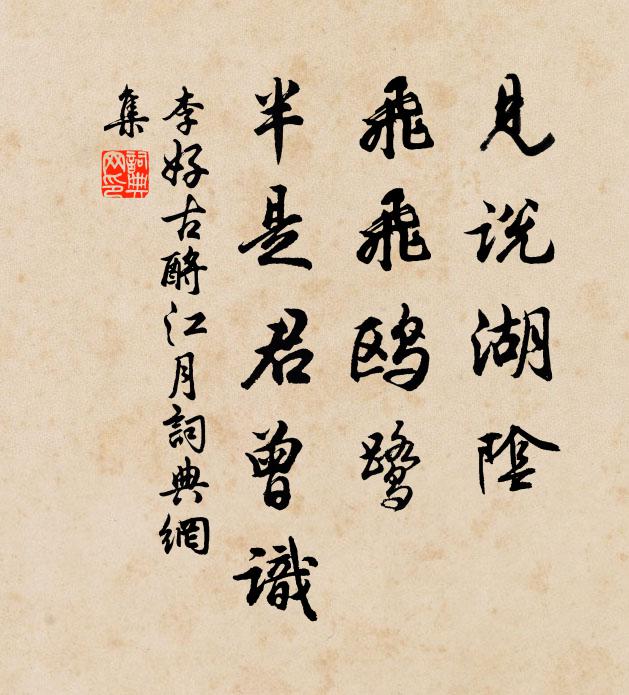 見説湖陰
飛飛鸥鷺
半是君曾識
李好古酹江月詞典網
集
詞典
网印